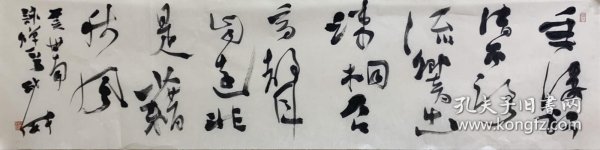 垂緌飲
清露
流響出
疎桐居
高聲
自遠非
是藉
秋風
虞世南
詠蟬
孔夫子旧书网
www.kongfz.com